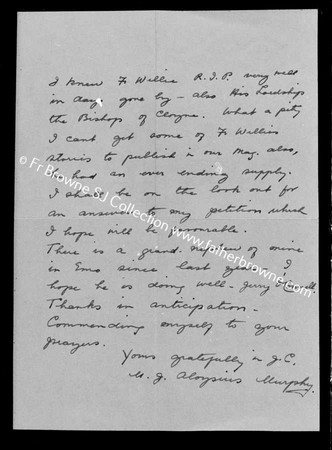 I knew Fr Willie R.I.P. very well
in days gone by - also His Lordship
the Bishop of Cloyne. What a pity
I cant get some of Fr Willies
stories to publish in our Mag. also,
he had an ever ending supply.
I shall be on the look out for
an answer to my petition which
I hope will be favourable.
There is a grand nephew of mine
in Emo since last year. I
hope he is doing well - Jerry
Thanks in anticipation -
Commending myself to your
prayers.
Yours gratefully in J.C.
M. J. Aloysius Murphy.
© Fr Browne SJ Collection
www.fatherbrowne.com